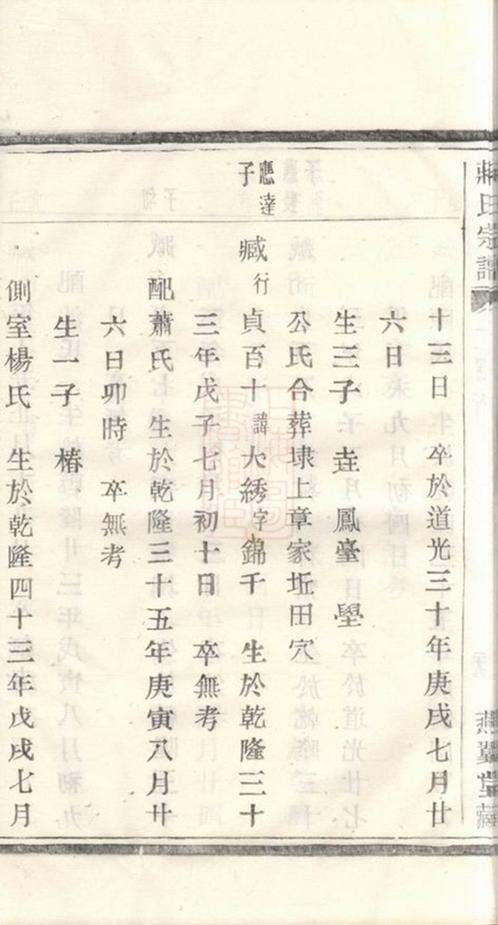 蔣氏宗譜
燕翼堂藏
十三日 卒於道光三十年庚戌七月廿
六日
生三子 垚 鳳臺 壂
公氏合葬埭上章家坵田穴
應達子
臧行貞百十諱大綉字錦千 生於乾隆三十
三年戊子七月初十日 卒無考
配蕭氏 生於乾隆三十五年庚寅八月廿
六日卯時 卒無考
生一子 椿
側室楊氏 生於乾隆四十三年戊戌七月